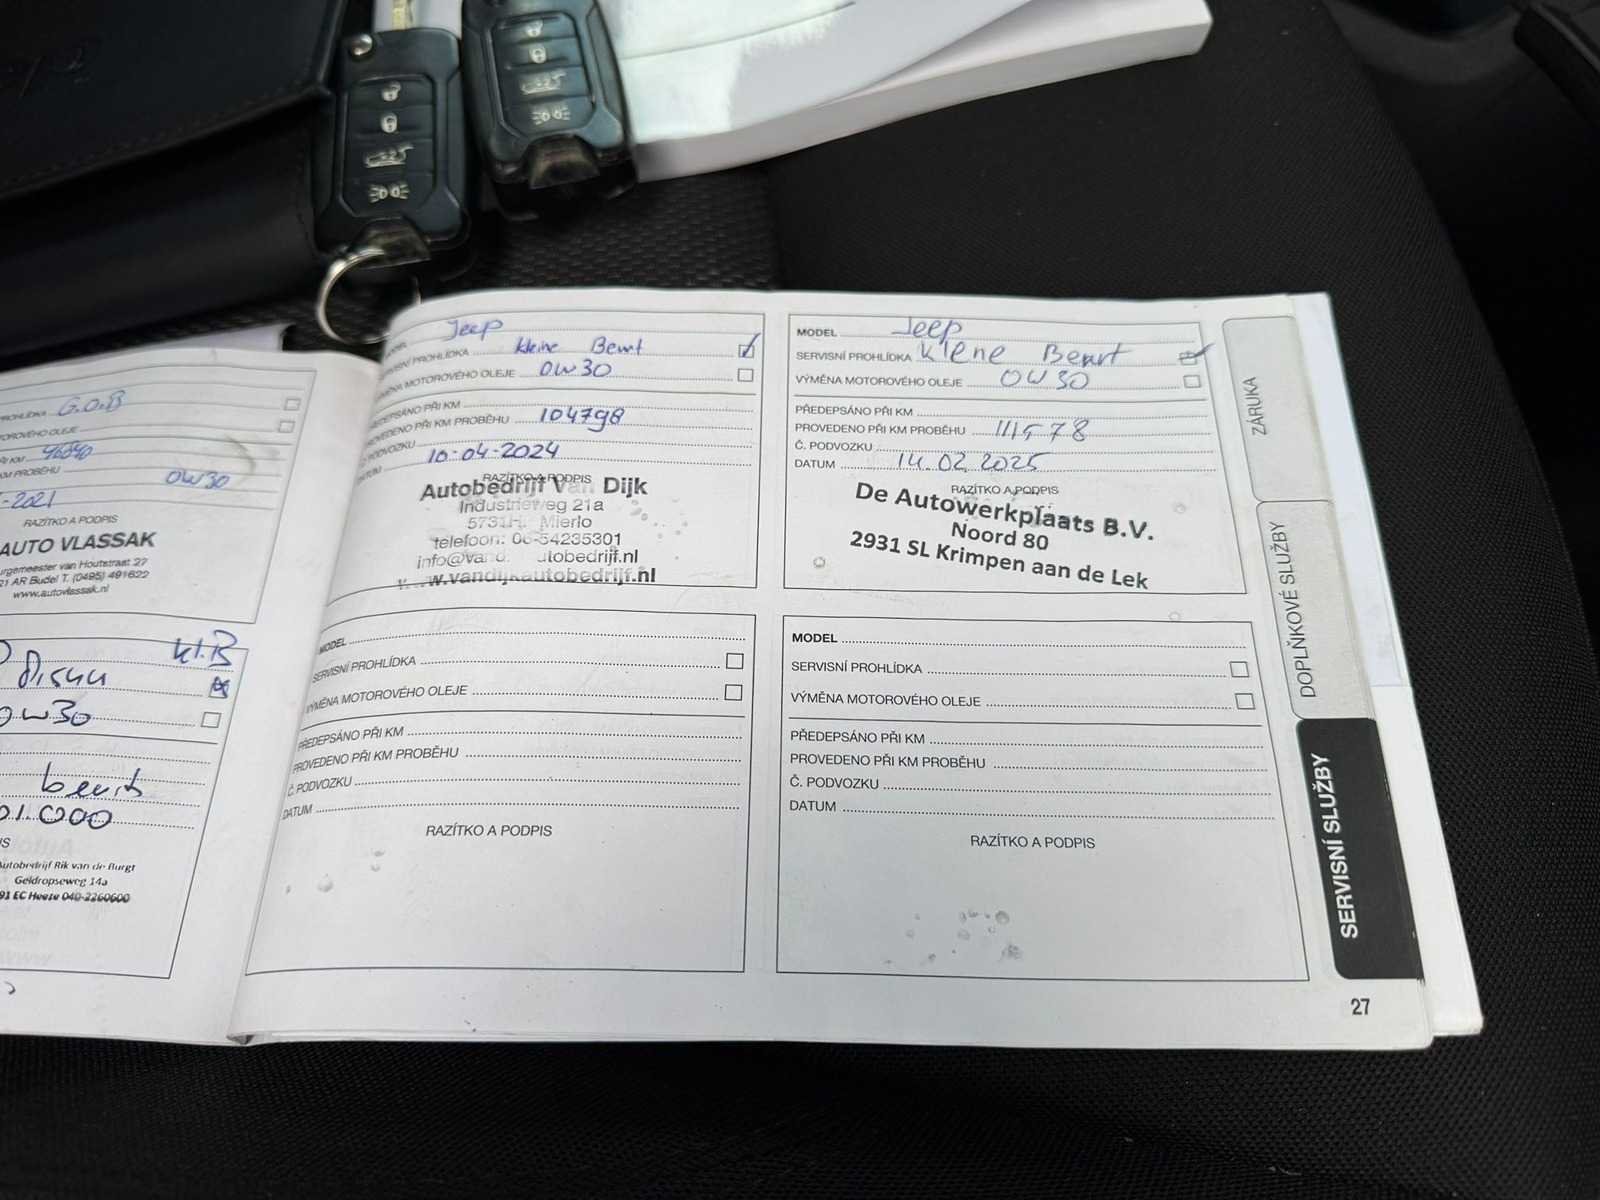 PROHLÍDKA G.O.B
MOTOROVÉHO OLEJE
PŘI KM 46240
KM PROBĚHU OW30
-2021
RAZÍTKO A PODPIS
AUTO VLASSAK
Burgemeester van Houtstraat 27
21 AR Budel T. (0495) 491622
www.autovlassak.nl
kl.B
OW30
01.000
Autobedrijf Rik van de Burgt
Geldropseweg 14a
91 EC Heeze 040-2260600
MODEL Jeep
SERVISNÍ PROHLÍDKA kleine Beurt
VÝMĚNA MOTOROVÉHO OLEJE OW30
PŘEDEPSÁNO PŘI KM
PROVEDENO PŘI KM PROBĚHU 104798
Č. PODVOZKU
DATUM 10-04-2024
RAZÍTKO A PODPIS
Autobedrijf Van Dijk
Industrieweg 21a
Mierlo
telefoon: 06-54235301
autobedrijf.nl
www.vandijkautobedrijf.nl
MODEL Jeep
SERVISNÍ PROHLÍDKA klene Beurt
VÝMĚNA MOTOROVÉHO OLEJE OW30
PŘEDEPSÁNO PŘI KM
PROVEDENO PŘI KM PROBĚHU 111578
Č. PODVOZKU
DATUM 14.02.2025
RAZÍTKO A PODPIS
De Autowerkplaats B.V.
Noord 80
2931 SL Krimpen aan de Lek
MODEL
SERVISNÍ PROHLÍDKA
VÝMĚNA MOTOROVÉHO OLEJE
PŘEDEPSÁNO PŘI KM
PROVEDENO PŘI KM PROBĚHU
Č. PODVOZKU
DATUM
RAZÍTKO A PODPIS
MODEL
SERVISNÍ PROHLÍDKA
VÝMĚNA MOTOROVÉHO OLEJE
PŘEDEPSÁNO PŘI KM
PROVEDENO PŘI KM PROBĚHU
Č. PODVOZKU
DATUM
RAZÍTKO A PODPIS
ZÁRUKA
DOPLŇKOVÉ SLUŽBY
SERVISNÍ SLUŽBY
27